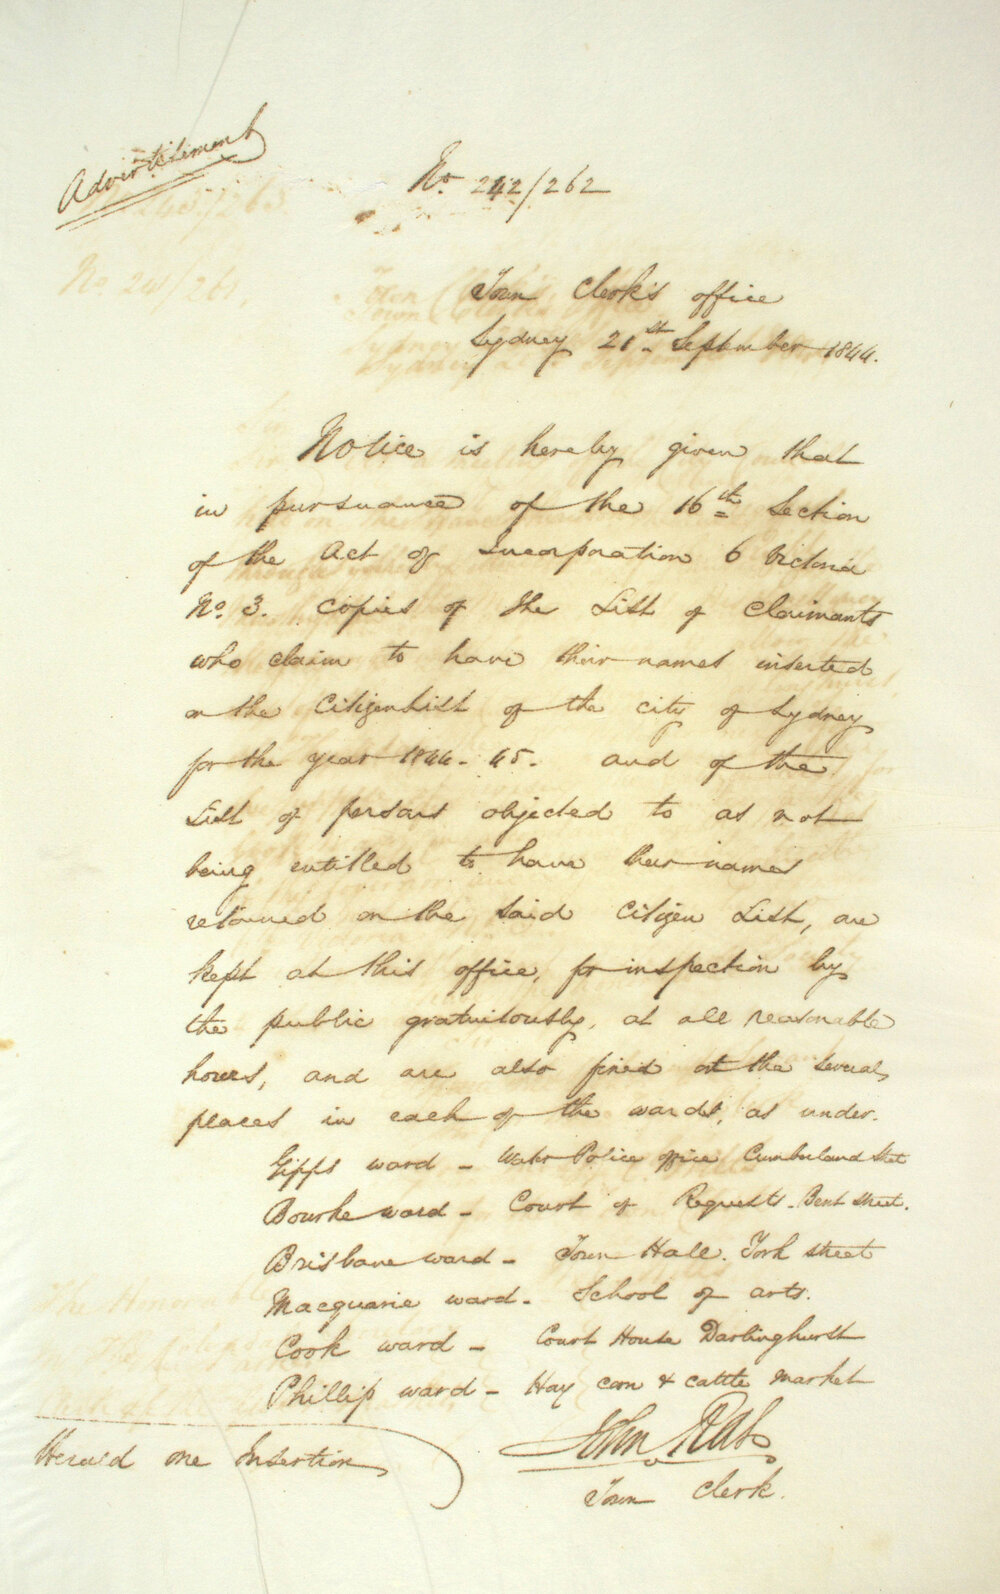 Advertisement
No. 242/262
Town Clerk's office
Sydney 21st September 1844.
Notice is hereby given that
in pursuance of the 16th Section
of the Act of Incorporation 6 Victoria
No. 3. Copies of the List of Claimants
who claim to have their names inserted
on the Citizen List of the city of Sydney
for the year 1844-45. and of the
List of persons objected to as not
being entitled to have their names
retained on the said Citizen List, are
kept at this office, for inspection by
the public gratuitously, at all reasonable
hours, and are also fixed at the several
places in each of the wards, as under.
Gipps ward - Water Police office Cumberland Street
Bourke ward - Court of Requests - Bent Street.
Brisbane ward - Town Hall. York street
Macquarie ward - School of arts.
Cook ward - Court House Darlinghurst
Phillip ward - Hay corn & cattle market
John Rae
Town Clerk.
Herald one Insertion